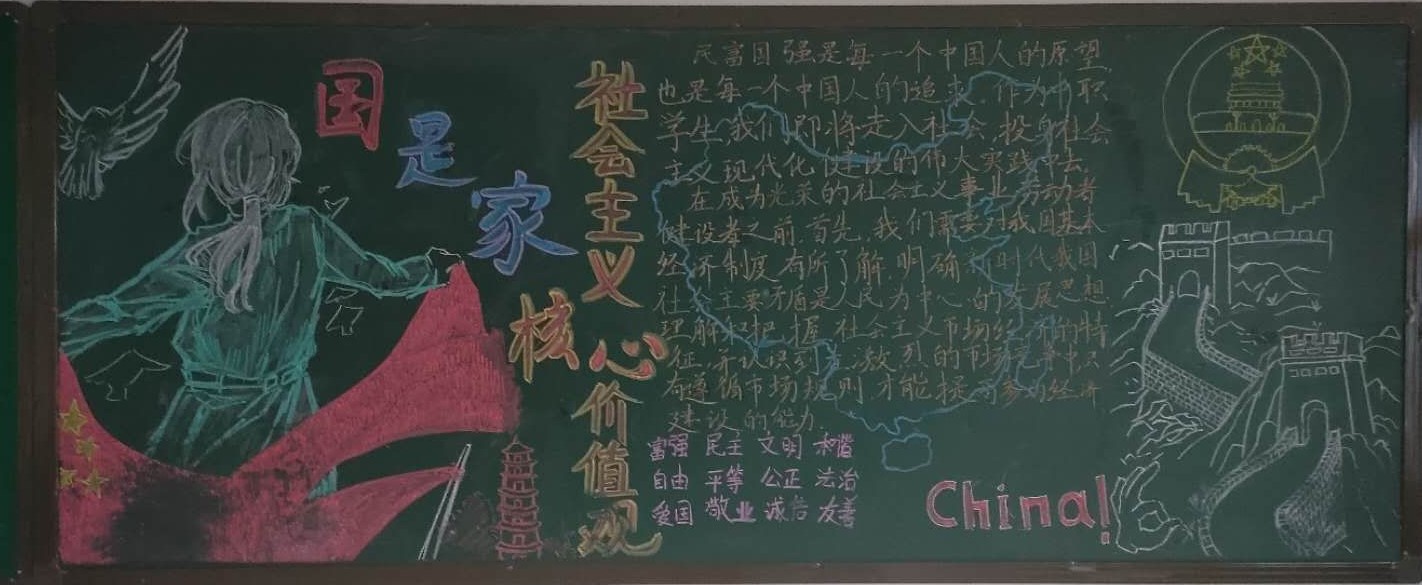 国是家
社会主义
核心价值观
民富国强是每一个中国人的原望,
也是每一个中国人的追求.作为中职
学生,我们即将走入社会,投身社会
主义现代化建设的伟大实践中去.
在成为光荣的社会主义事业劳动者
建设者之前,首先,我们需要对我国基本
经济制度有所了解,明确 时代我国
社会主要矛盾是人民为中心的发展思想.
理解和把握社会主义市场经济的特
征,并认识到,激烈的市场竞争中只
有遵循市场规则,才能提高参与经济
建设的能力.
富强 民主 文明 和谐
自由 平等 公正 法治
爱国 敬业 诚信 友善
China!